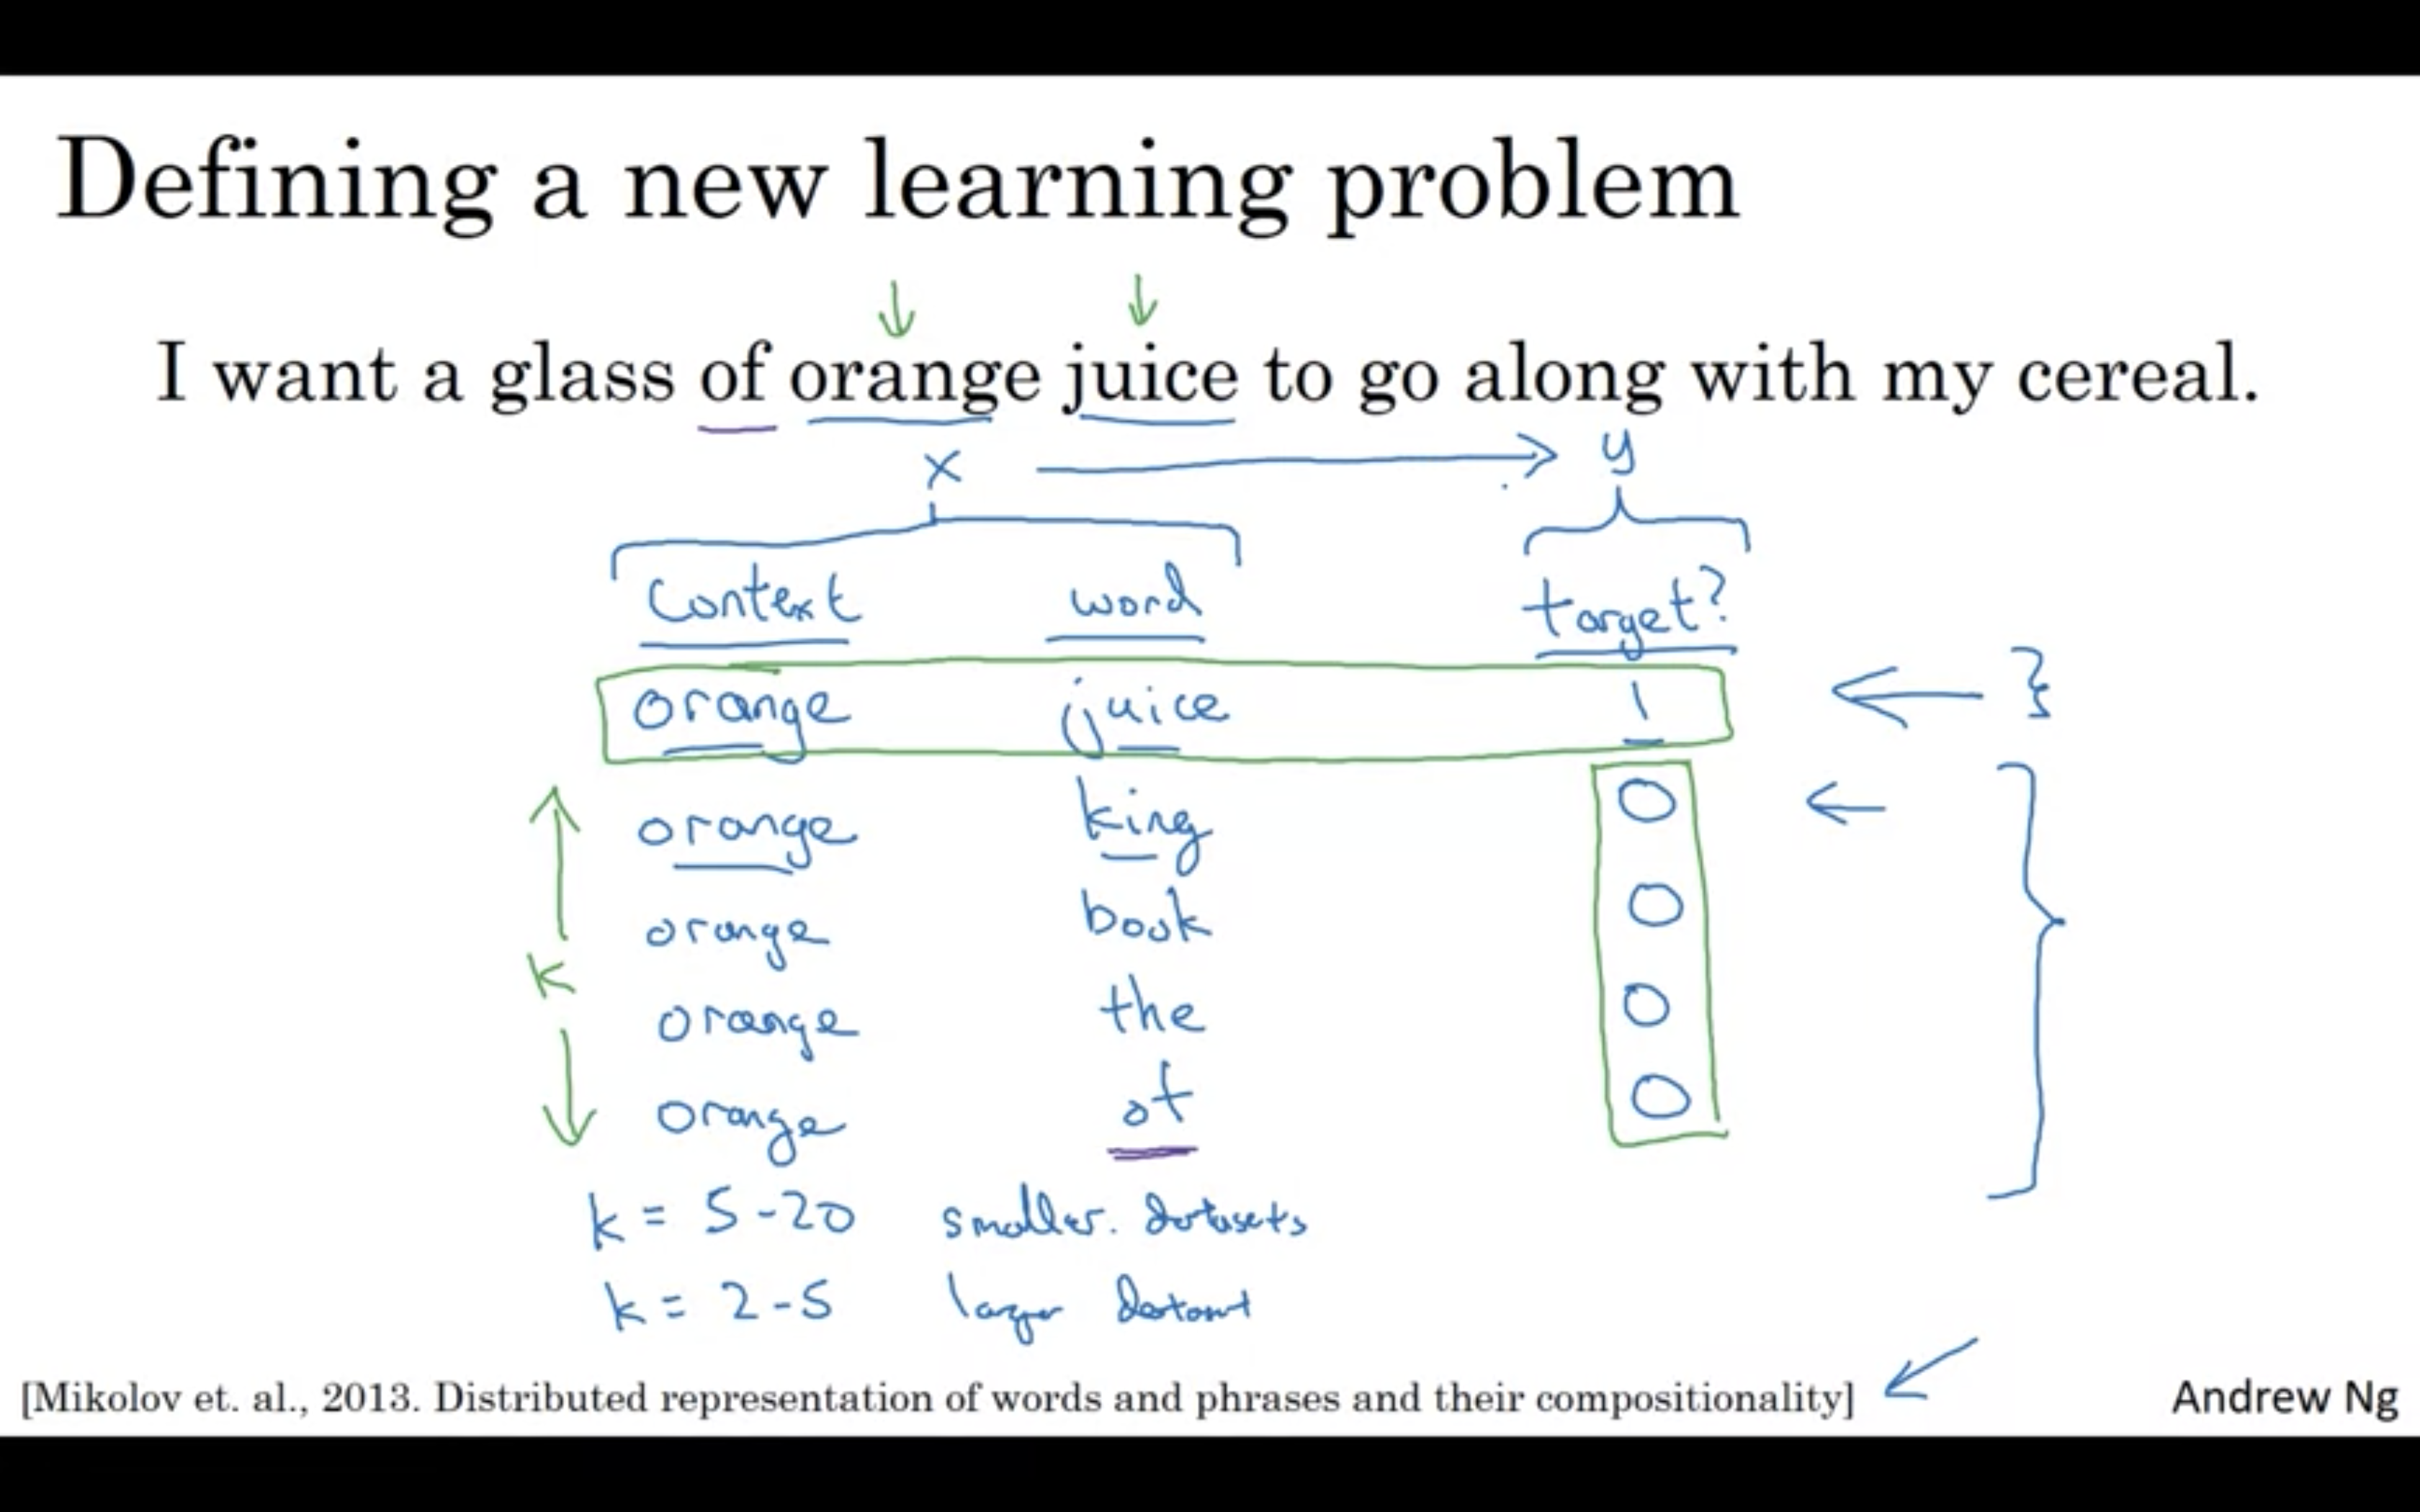 Defining a new learning problem
I want a glass of orange juice to go along with my cereal.
x y
Context word target?
orange juice 1
orange king 0
orange book 0
k
orange the 0
orange of 0
k = 5-20 smaller. datasets
k = 2-5 larger dataset
[Mikolov et. al., 2013. Distributed representation of words and phrases and their compositionality]
Andrew Ng